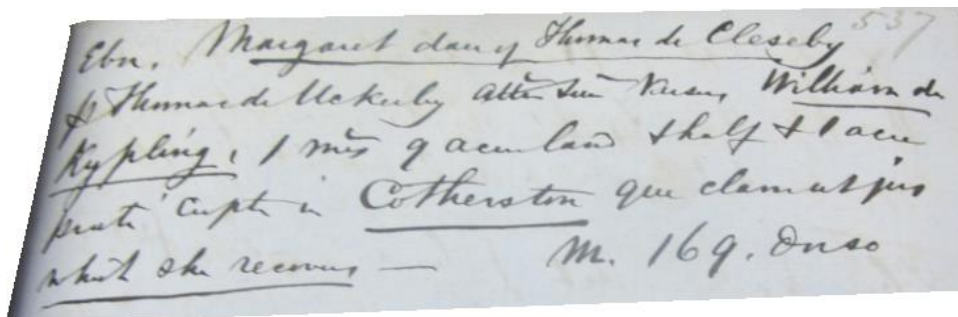 537
Ebor. Margaret dau of Thomas de Cleseby
p Thomas de Uckerby atten suu versus William de
Kyppling, 1 mes 9 acre land & half & 1 acre
prati cu ptin in Cotherston que clam ut jus
which she recovers —
M. 169. Dorso